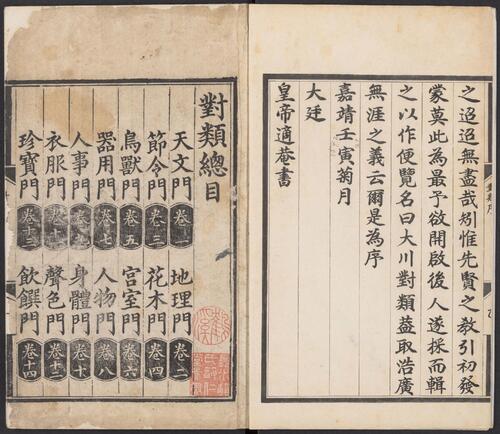 之迢迢無盡哉矧惟先賢之教引初發
蒙莫此為最予欲開啟後人遂採而輯
之以作便覽名曰大川對類蓋取浩廣
無涯之義云爾是為序
嘉靖壬寅菊月
大廷
皇帝適菴書
對類總目
天文門 卷一 地理門 卷二
節令門 卷三 花木門 卷四
鳥獸門 卷五 宮室門 卷六
器用門 卷七 人物門 卷八
人事門 卷九 身體門 卷十
衣服門 卷十一 聲色門 卷十二
珍寶門 卷十三 飲饌門 卷十四